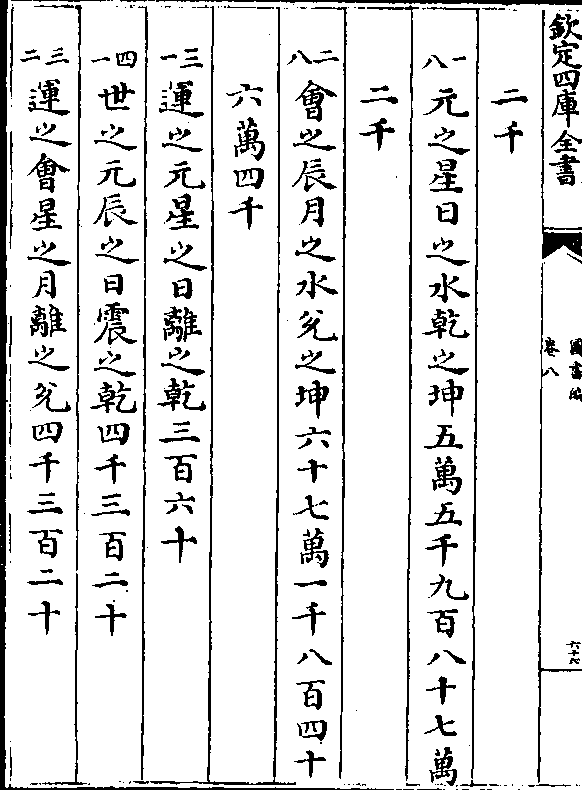 欽定四庫全書
圖書編
卷八
二千
一八元之星日之水乾之坤五萬五千九百八十七萬
二千
二八會之辰月之水兊之坤六十七萬一千八百四十
六萬四千
三一運之元星之日離之乾三百六十
四一世之元辰之日震之乾四千三百二十
三二運之會星之月離之兊四千三百二十